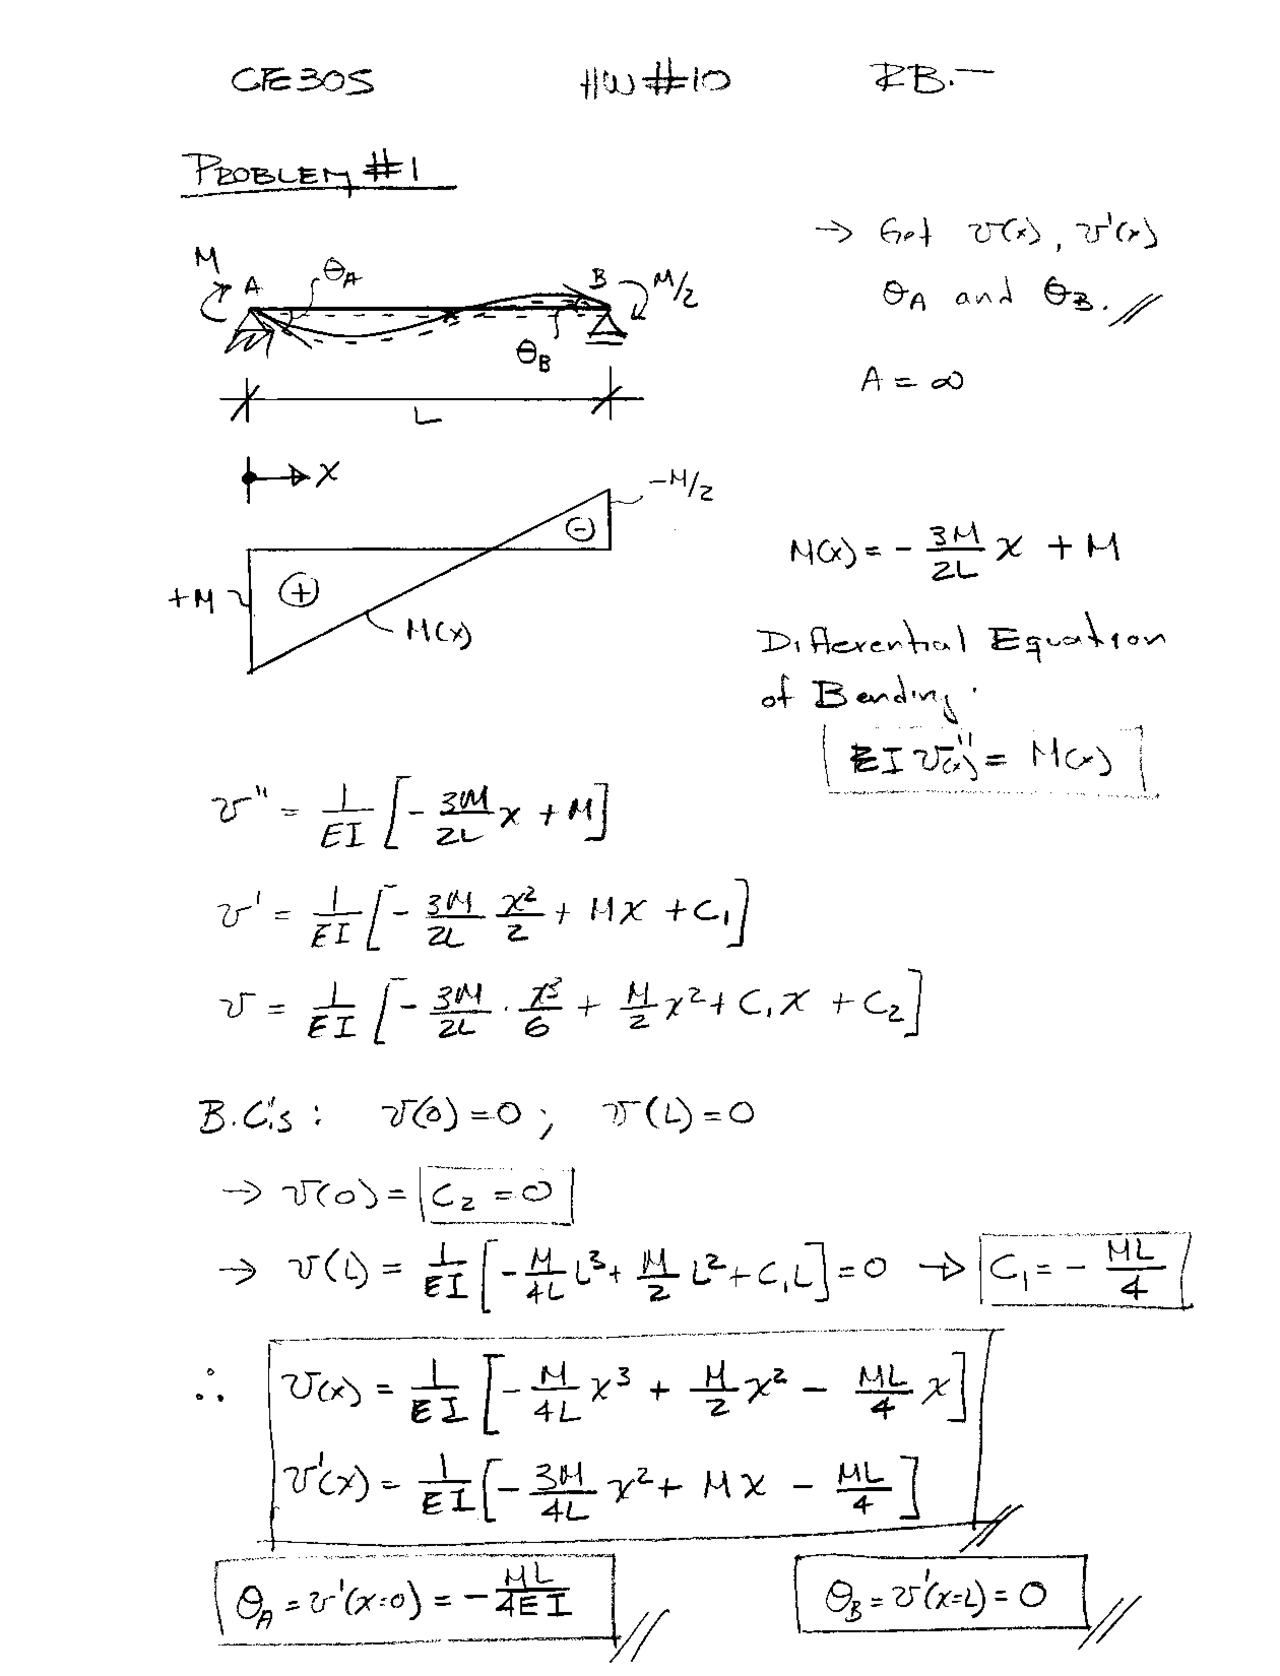 CE305 HW#10 RB.-
PROBLEM #1
→ Get v(x), v'(x)
θA and θB. //
A = ∞
M A θA B M/2
θB
L
x
-M/2
+M ⊕ ⊖
M(x)
M(x) = - 3M/2L x + M
Differential Equation
of Bending.
EI v(x)'' = M(x)
v'' = 1/EI [- 3M/2L x + M]
v' = 1/EI [- 3M/2L x²/2 + Mx + C₁]
v = 1/EI [- 3M/2L · x³/6 + M/2 x² + C₁x + C₂]
B.C.'s : v(0) = 0 ; v(L) = 0
→ v(0) = C₂ = 0
→ v(L) = 1/EI [- M/4L L³ + M/2 L² + C₁L] = 0 → C₁ = - ML/4
∴ v(x) = 1/EI [- M/4L x³ + M/2 x² - ML/4 x]
v'(x) = 1/EI [- 3M/4L x² + Mx - ML/4] //
θA = v'(x=0) = - ML/4EI // θB = v'(x=L) = 0 //